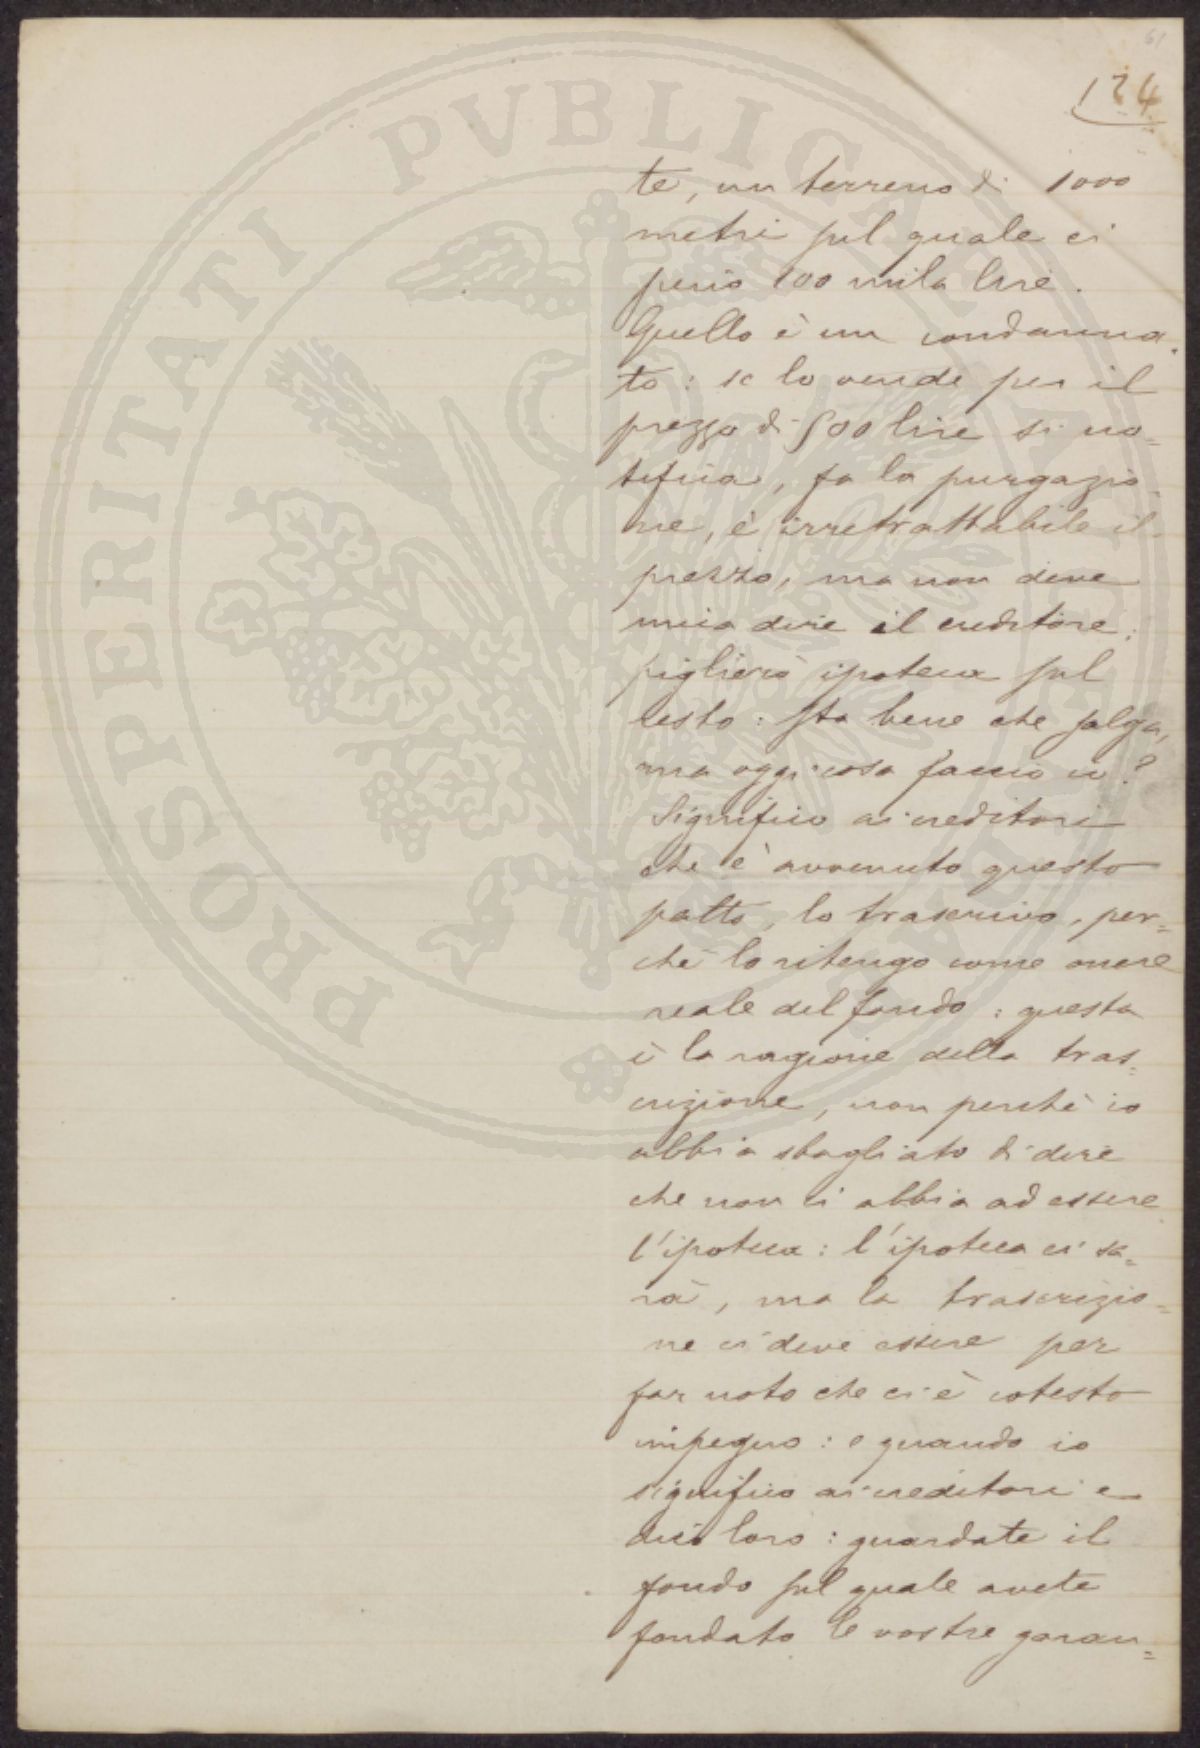 61
124
te, un terreno di 1000
metri sul quale ci
perio 100 mila lire.
Quello è un condanna-
to: se lo vende per il
prezzo di 500 lire si no=
tifica, fa la purgazio-
ne, è irretrattabile il
prezzo, ma non deve
mica dire il creditore:
piglierò ipoteca sul
resto: sta bene che salga,
ma oggi cosa faccio io?
Significo ai creditori
che è avvenuto questo
patto, lo trascrivo, per=
chè lo ritengo come onere
reale del fondo: questa
è la ragione della tras=
crizione, non perchè io
abbia sbagliato di dire
che non ci abbia ad essere
l'ipoteca: l'ipoteca ci sa=
rà, ma la trascrizio=
ne ci deve essere per
far noto che ci è cotesto
impegno: e quando io
significo ai creditori e
dico loro: guardate il
fondo sul quale avete
fondato le vostre garan=
PROSPERITATI PVBLICAE